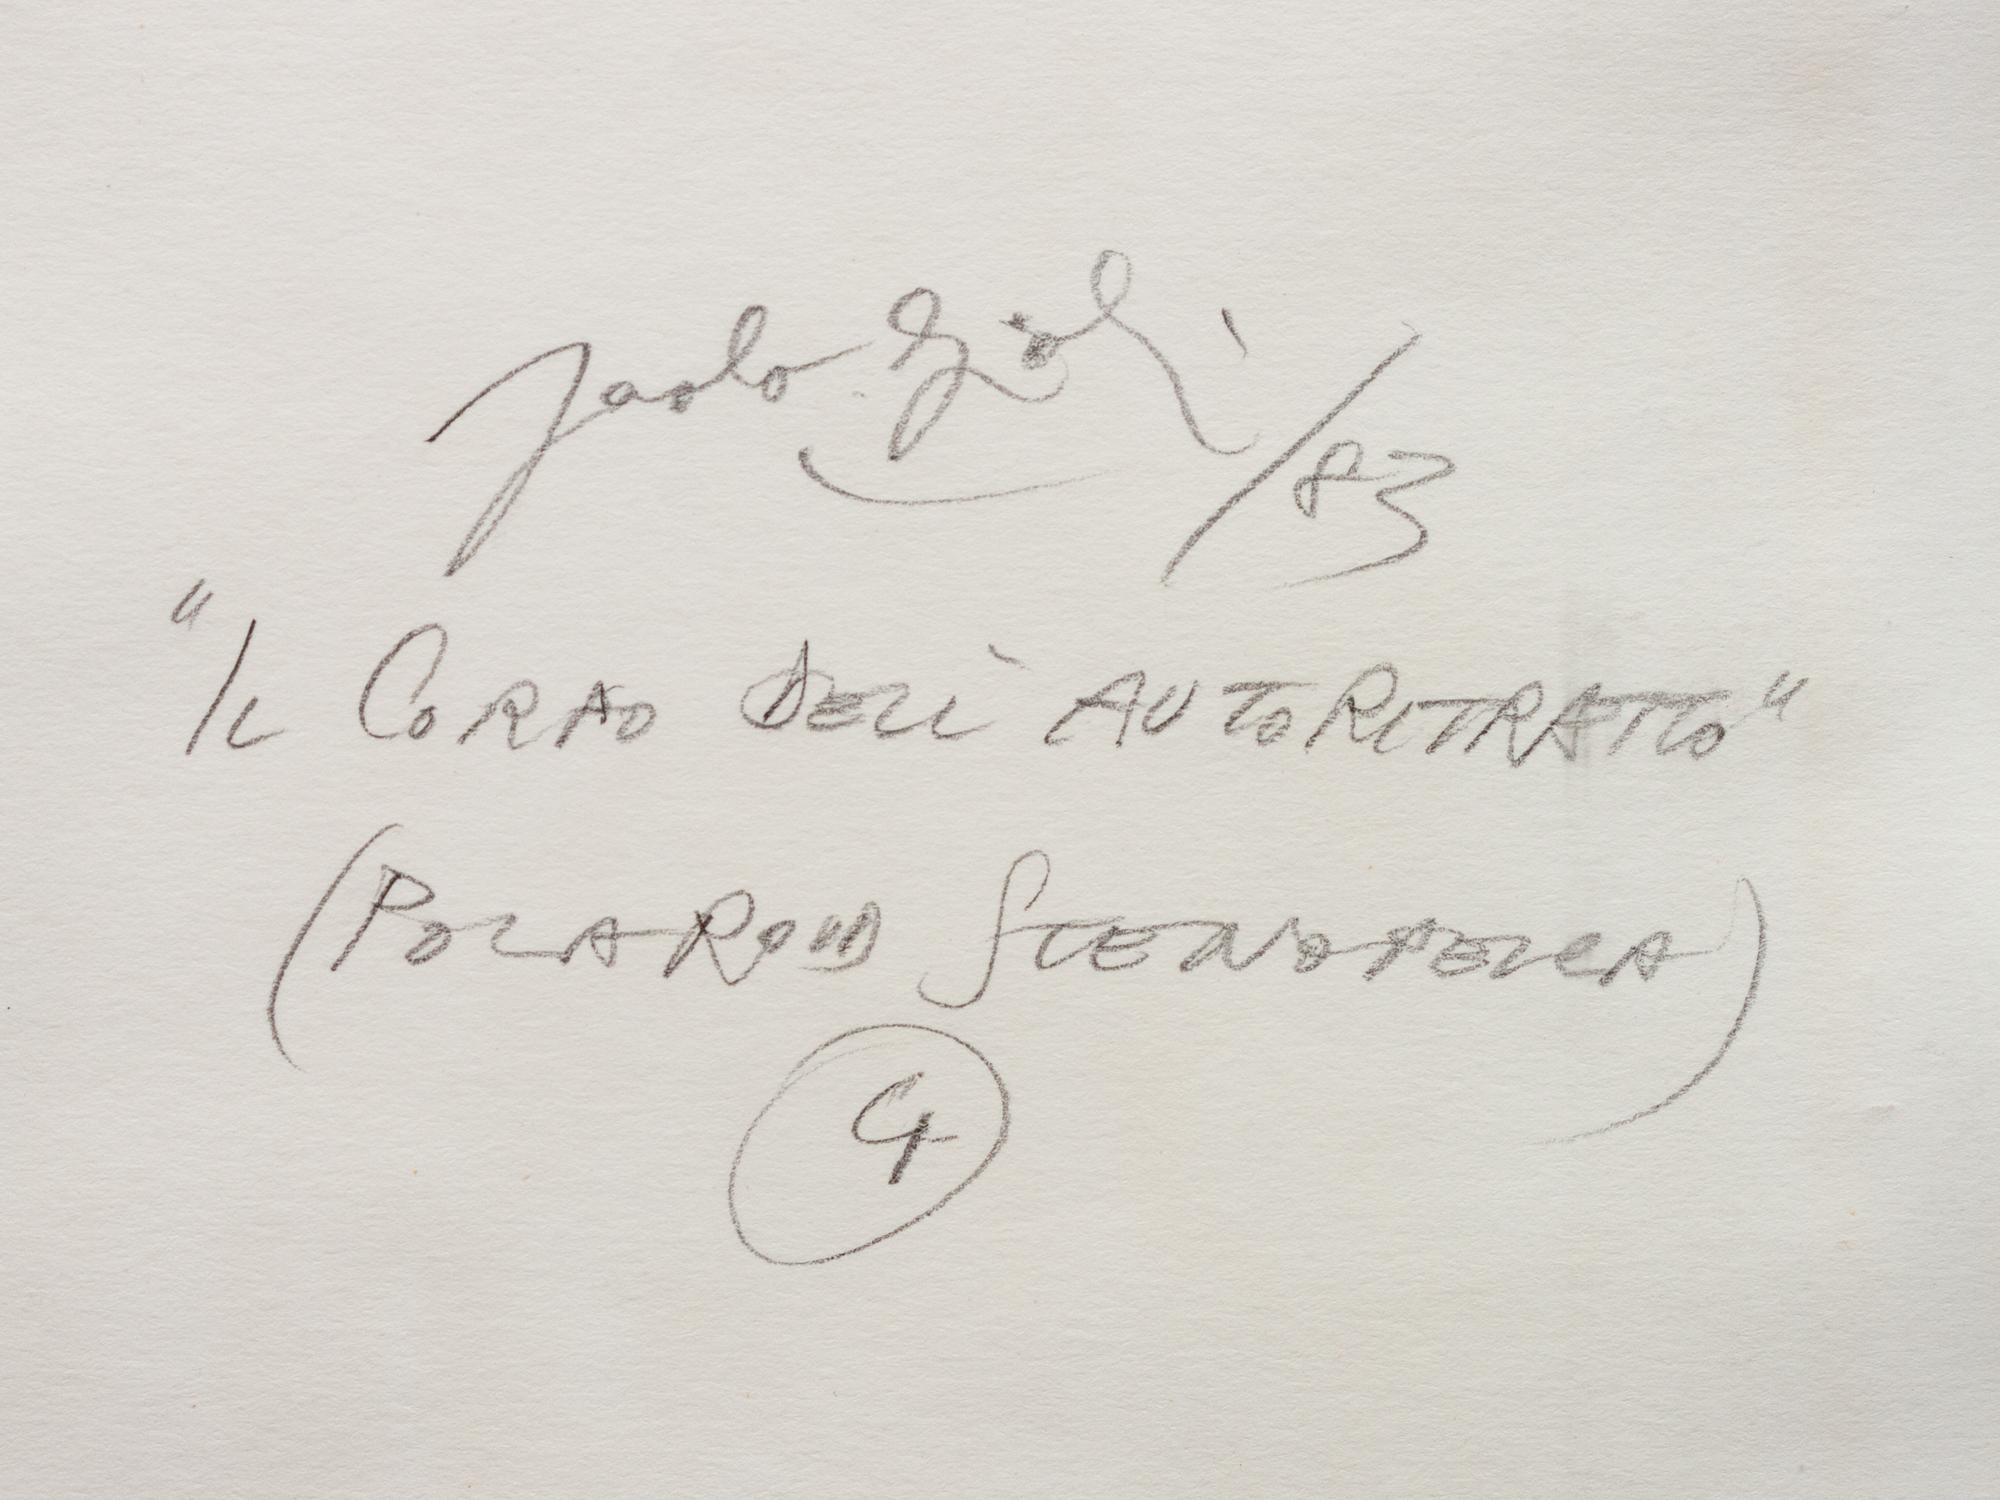 Paolo Gioli /83
"Il Corpo dell'autoritratto"
(Polaroid Stenopeica)
4